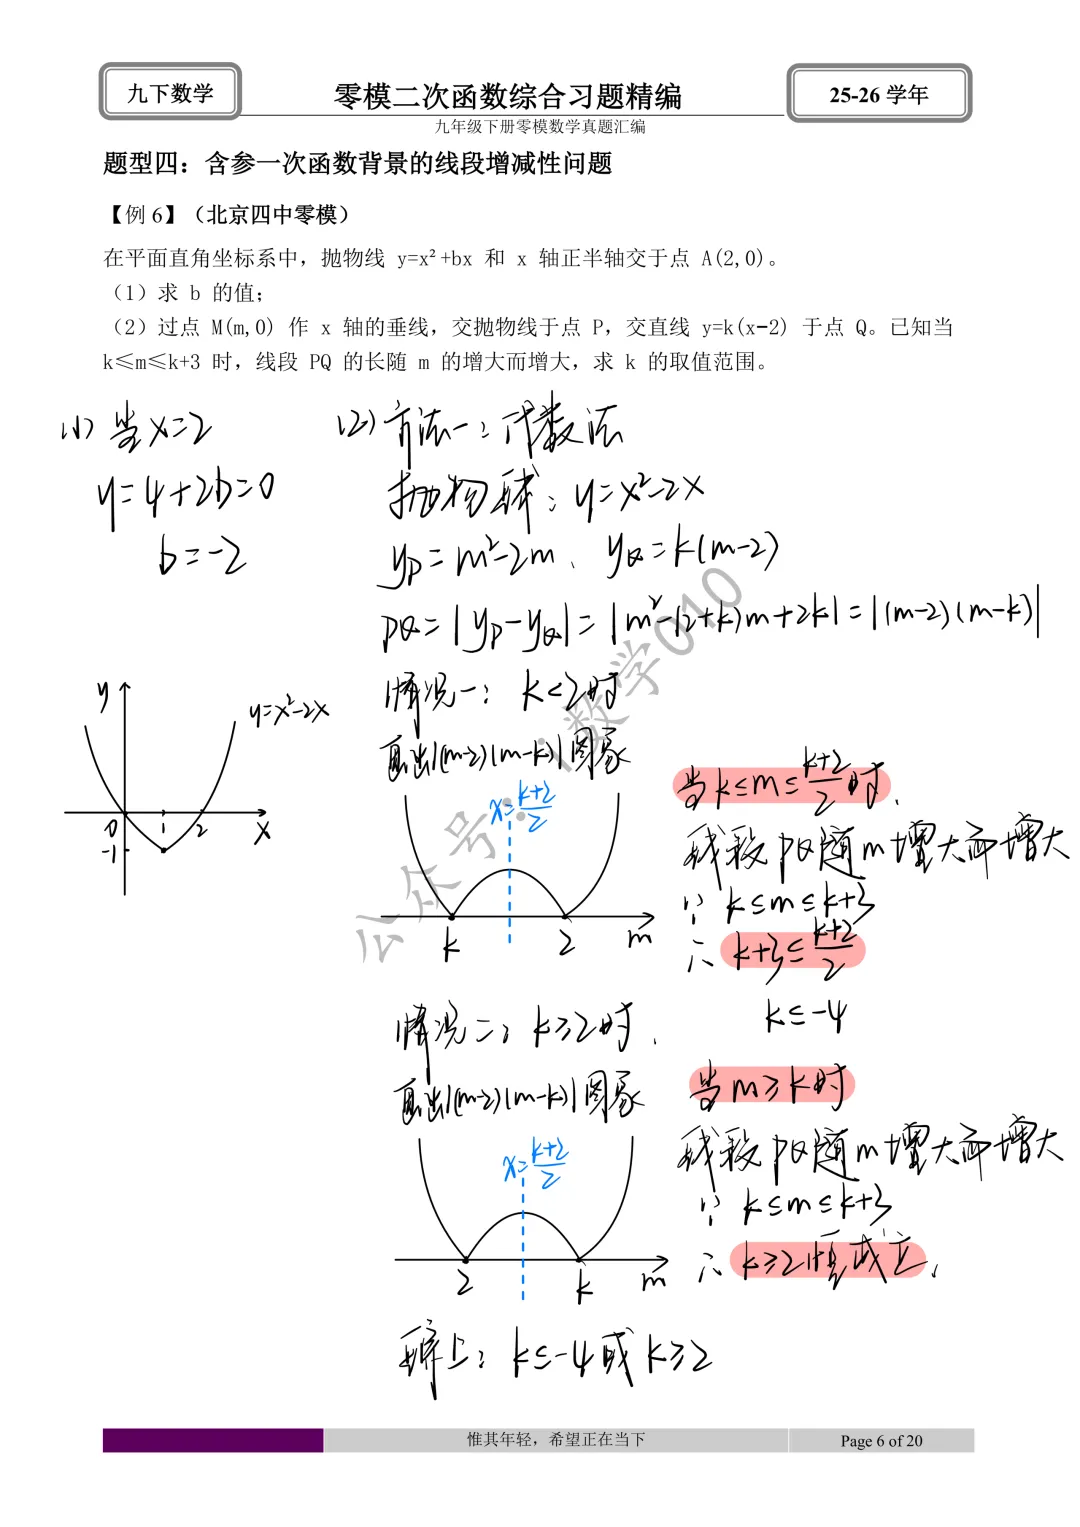 九下数学
零模二次函数综合习题精编
25-26 学年
九年级下册零模数学真题汇编
题型四：含参一次函数背景的线段增减性问题
【例 6】（北京四中零模）
在平面直角坐标系中，抛物线 y=x²+bx 和 x 轴正半轴交于点 A(2,0)。
（1）求 b 的值；
（2）过点 M(m,0) 作 x 轴的垂线，交抛物线于点 P，交直线 y=k(x-2) 于点 Q。已知当
k≤m≤k+3 时，线段 PQ 的长随 m 的增大而增大，求 k 的取值范围。
(1) 当x=2
y=4+2b=0
b=-2
y
y=x²-2x
0 1 2 x
-1
(2) 方法一：代数法
抛物线：y=x²-2x
yP=m²-2m、yQ=k(m-2)
PQ=|yP-yQ|=|m²-(2+k)m+2k|=|(m-2)(m-k)|
情况一：k<2时
画出|(m-2)(m-k)|图象
x=(k+2)/2
k 2 m
当k≤m≤(k+2)/2时、
线段PQ随m增大而增大
∵ k≤m≤k+3
∴ k+3≤(k+2)/2
k≤-4
情况二：k≥2时、
画出|(m-2)(m-k)|图象
x=(k+2)/2
2 k m
当m≥k时
线段PQ随m增大而增大
∵ k≤m≤k+3
∴ k≥2恒成立、
综上：k≤-4或k≥2
公众号：i数学010
惟其年轻，希望正在当下
Page 6 of 20